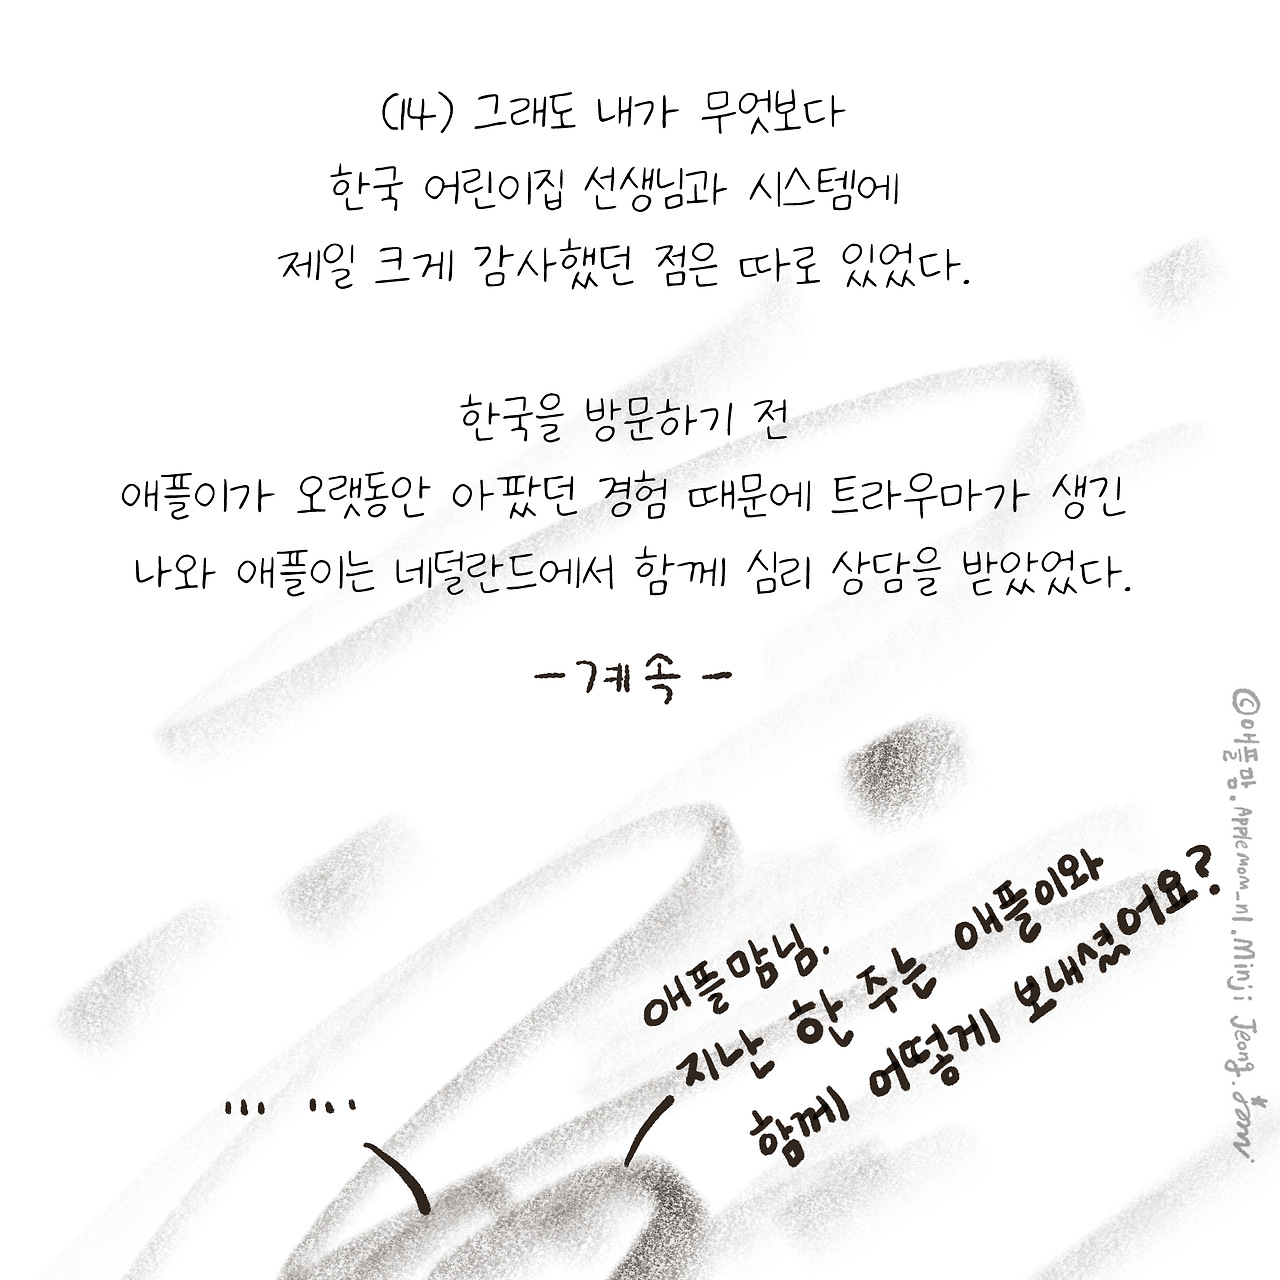 (14) 그래도 내가 무엇보다
한국 어린이집 선생님과 시스템에
제일 크게 감사했던 점은 따로 있었다.
한국을 방문하기 전
애플이가 오랫동안 아팠던 경험 때문에 트라우마가 생긴
나와 애플이는 네덜란드에서 함께 심리 상담을 받았었다.
- 계속 -
애플맘님.
지난 한 주는 애플이와
함께 어떻게 보내셨어요?
... ...
©애플맘.Applemom_nl.Minji Jeong.